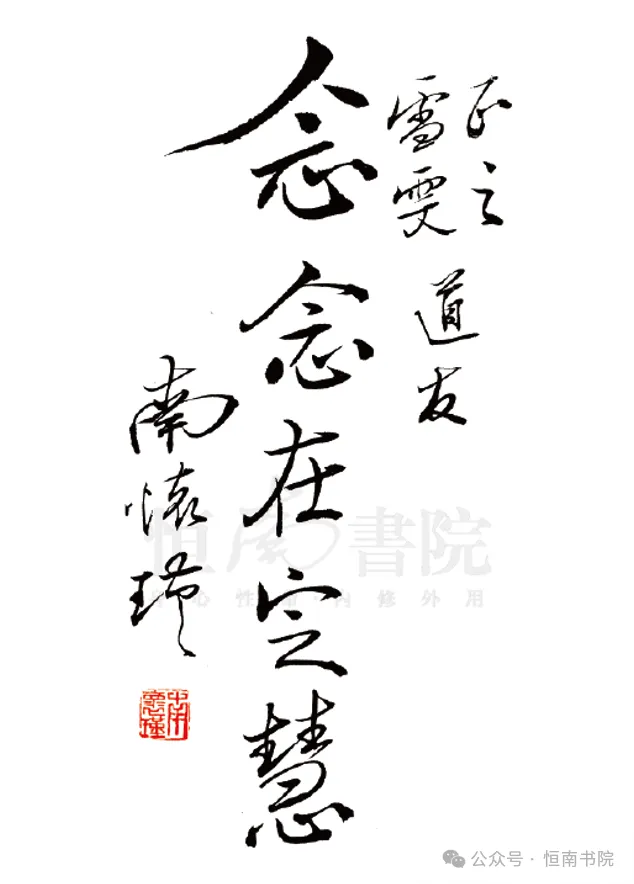 正之
雪雯
道友
念念在定慧
南懷瑾
南懷瑾
恒南書院
心性 内修外用
公众号 · 恒南书院